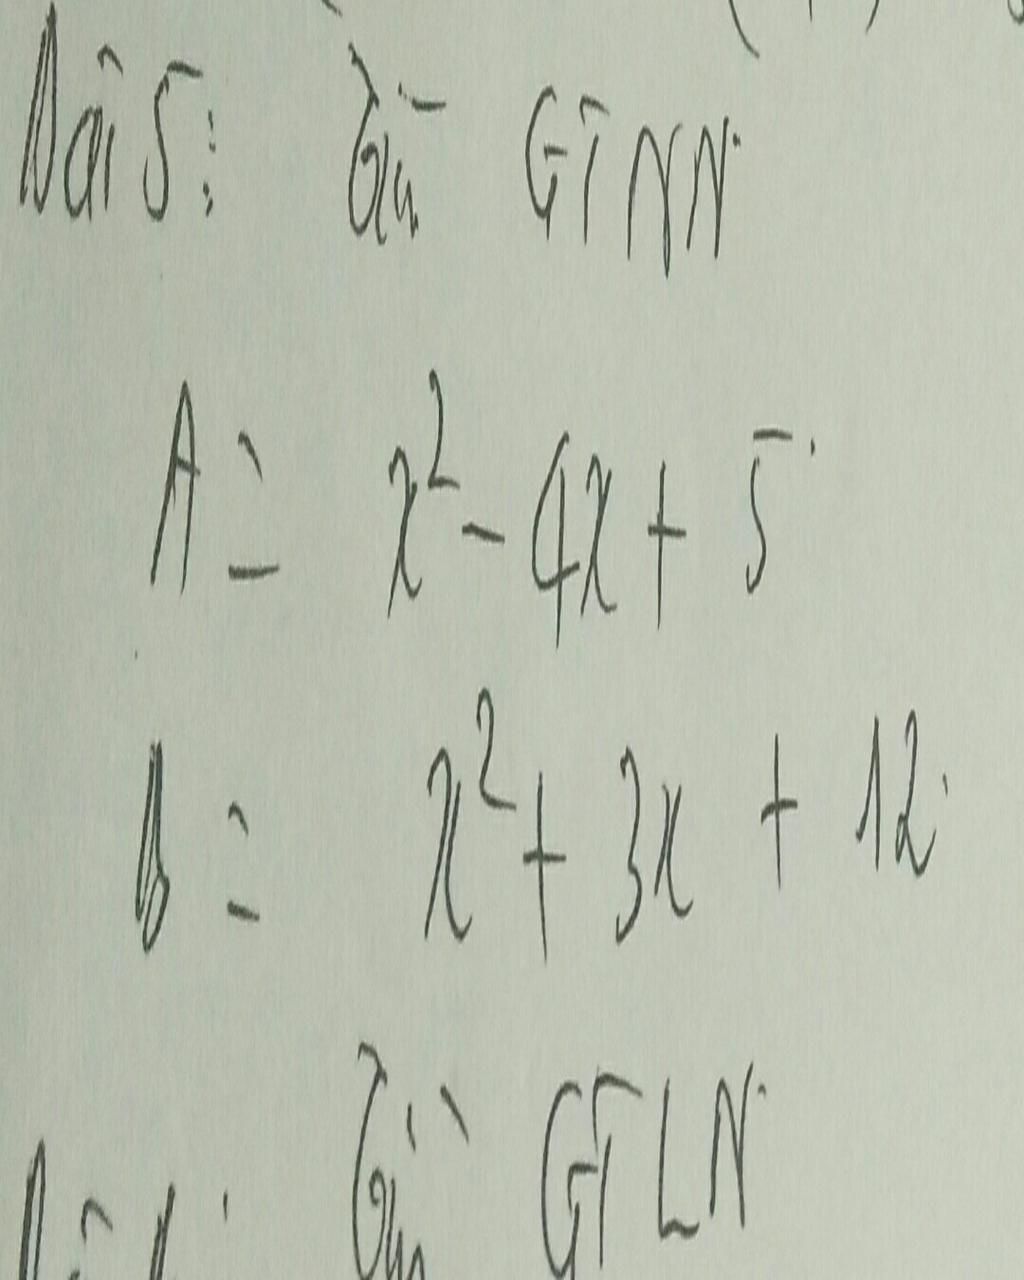 Bài 5: Tìm GTNN
A = x² - 4x + 5
B = x² + 3x + 12
Tìm GTLN